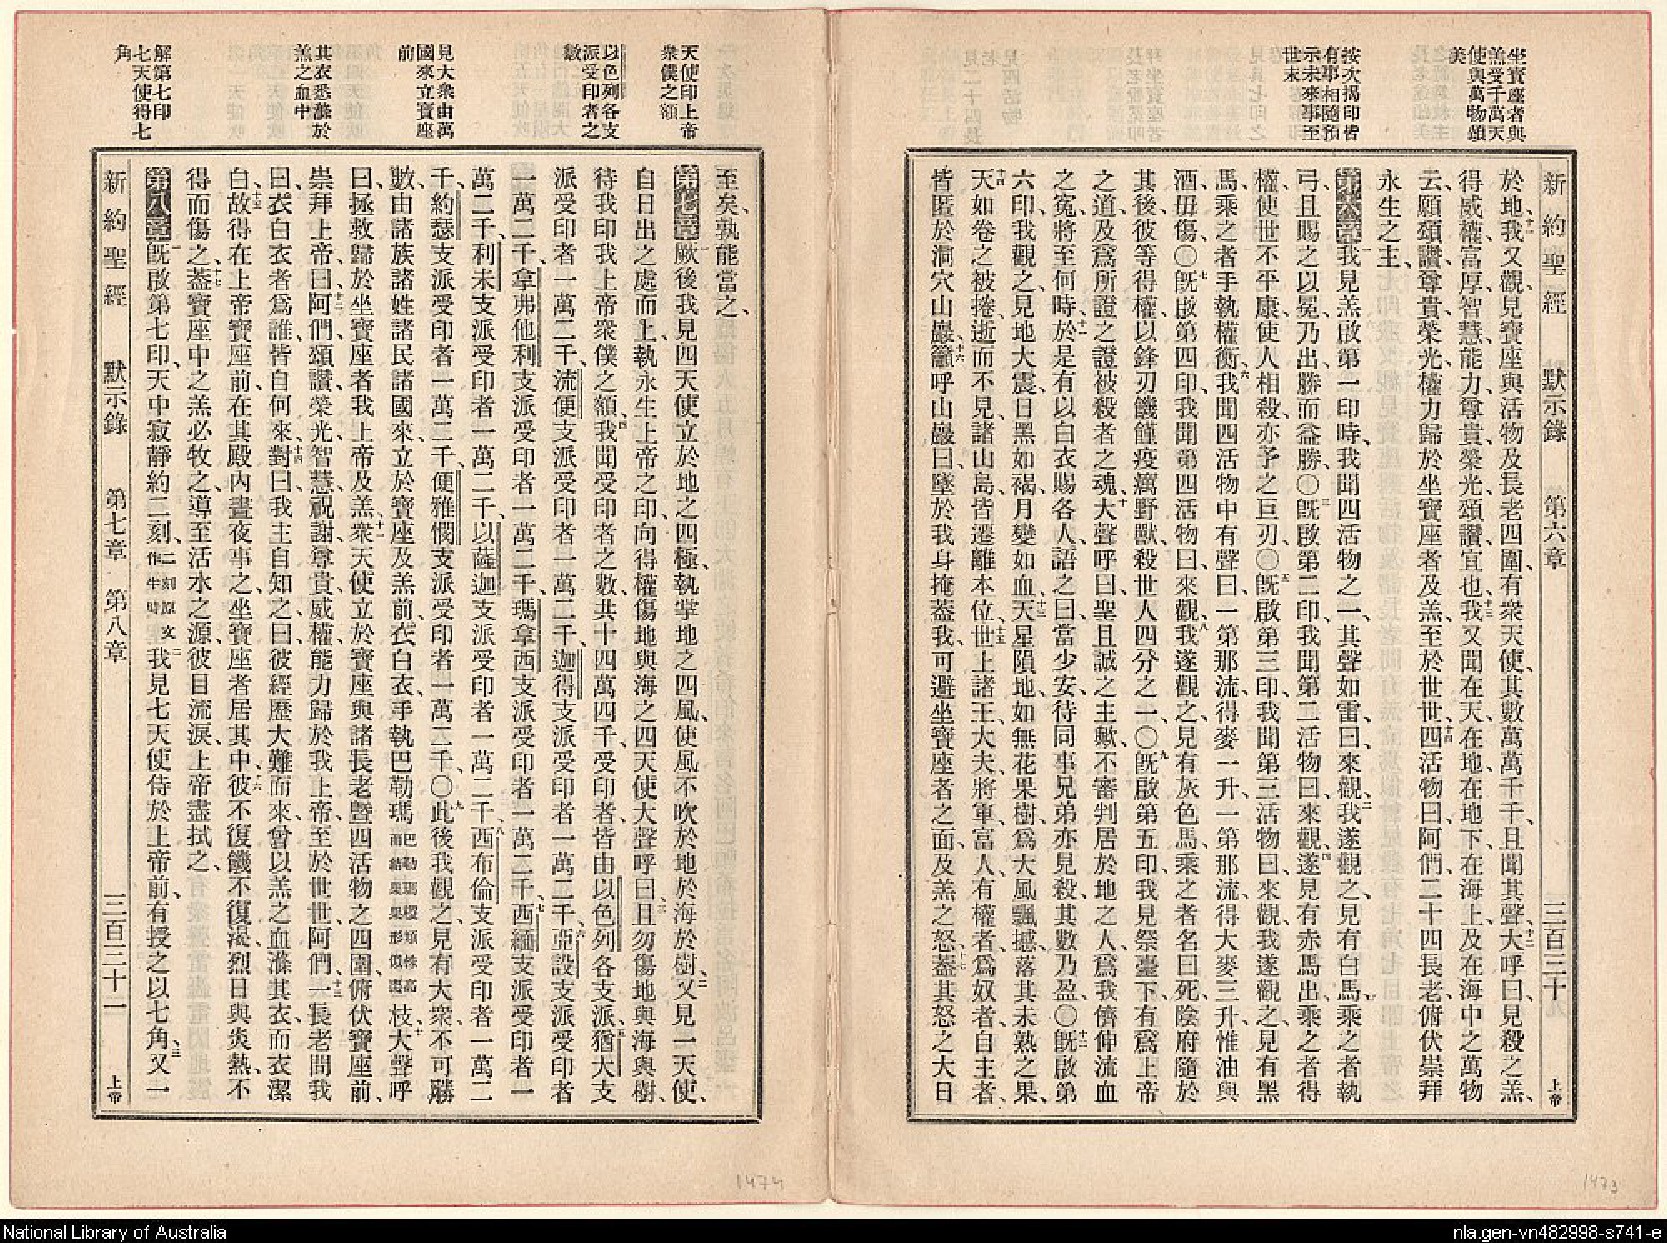 坐寶座者與
羔受千萬天
使與萬物頌
美
按次揭印皆
有事相隨預
示未來事至
世末
新約聖經 默示錄 第六章 三百三十 上帝
於地我又觀見寶座與活物及長老四圍有衆天使其數萬萬千千且聞其聲大呼曰見殺之羔
得威權富厚智慧能力尊貴榮光頌讚宜也我又聞在天在地在地下在海上及在海中之萬物
云願頌讚尊貴榮光權力歸於坐寶座者及羔至於世世四活物曰阿們二十四長老俯伏崇拜
永生之主
第六章我見羔啟第一印時我聞四活物之一其聲如雷曰來觀我遂觀之見有白馬乘之者執
弓且賜之以冕乃出勝而益勝○旣啟第二印我聞第二活物曰來觀遂見有赤馬出乘之者得
權使世不平康使人相殺亦予之巨刃○旣啟第三印我聞第三活物曰來觀我遂觀之見有黑
馬乘之者手執權衡我聞四活物中有聲曰一第那流得麥一升一第那流得大麥三升惟油與
酒毋傷○旣啟第四印我聞第四活物曰來觀我遂觀之見有灰色馬乘之者名曰死陰府隨於
其後彼等得權以鋒刃饑饉疫癘野獸殺世人四分之一○旣啟第五印我見祭臺下有爲上帝
之道及爲所證之證被殺者之魂大聲呼曰聖且誠之主歟不審判居於地之人爲我儕伸流血
之寃將至何時於是有以白衣賜各人語之曰當少安待同事兄弟亦見殺其數乃盈○旣啟第
六印我觀之見地大震日黑如褐月變如血天星隕地如無花果樹爲大風飄撼落其未熟之果
天如卷之被捲逝而不見諸山島皆遷離本位世上諸王大夫將軍富人有權者爲奴者自主者
皆匿於洞穴山巖籲呼山巖曰墜於我身掩葢我可避坐寶座者之面及羔之怒葢其怒之大日
天使印上帝
衆僕之額
以色列各支
派受印者之
數
見大衆由萬
國來立寶座
前
其衣悉滌於
羔之血中
解第七印
七天使得七
角
至矣孰能當之
第七章厥後我見四天使立於地之四極執掌地之四風使風不吹於地於海於樹又見一天使
自日出之處而上執永生上帝之印向得權傷地與海之四天使大聲呼曰且勿傷地與海與樹
待我印我上帝衆僕之額我聞受印者之數共十四萬四千受印者皆由以色列各支派猶大支
派受印者一萬二千流便支派受印者一萬二千迦得支派受印者一萬二千亞設支派受印者
一萬二千拿弗他利支派受印者一萬二千瑪拿西支派受印者一萬二千西緬支派受印者一
萬二千利未支派受印者一萬二千以薩迦支派受印者一萬二千西布倫支派受印者一萬二
千約瑟支派受印者一萬二千便雅憫支派受印者一萬二千○此後我觀之見有大衆不可勝
數由諸族諸姓諸民諸國來立於寶座及羔前衣白衣手執巴勒瑪枝大聲呼
曰拯救歸於坐寶座者我上帝及羔衆天使立於寶座與諸長老曁四活物之四圍俯伏寶座前
崇拜上帝曰阿們頌讚榮光智慧祝謝尊貴威權能力歸於我上帝至於世世阿們一長老問我
曰衣白衣者爲誰皆自何來對曰我主自知之曰彼經歷大難而來曾以羔之血滌其衣而衣潔
白故得在上帝寶座前在其殿內晝夜事之坐寶座者居其中彼不復饑不復渴烈日與炎熱不
得而傷之葢寶座中之羔必牧之導至活水之源彼目流淚上帝盡拭之
第八章旣啟第七印天中寂靜約二刻二刻原文作半時我見七天使侍於上帝前有授之以七角又一
新約聖經 默示錄 第七章 第八章 三百三十一 上帝
1474
1473
National Library of Australia
nla.gen-vn482998-s741-e